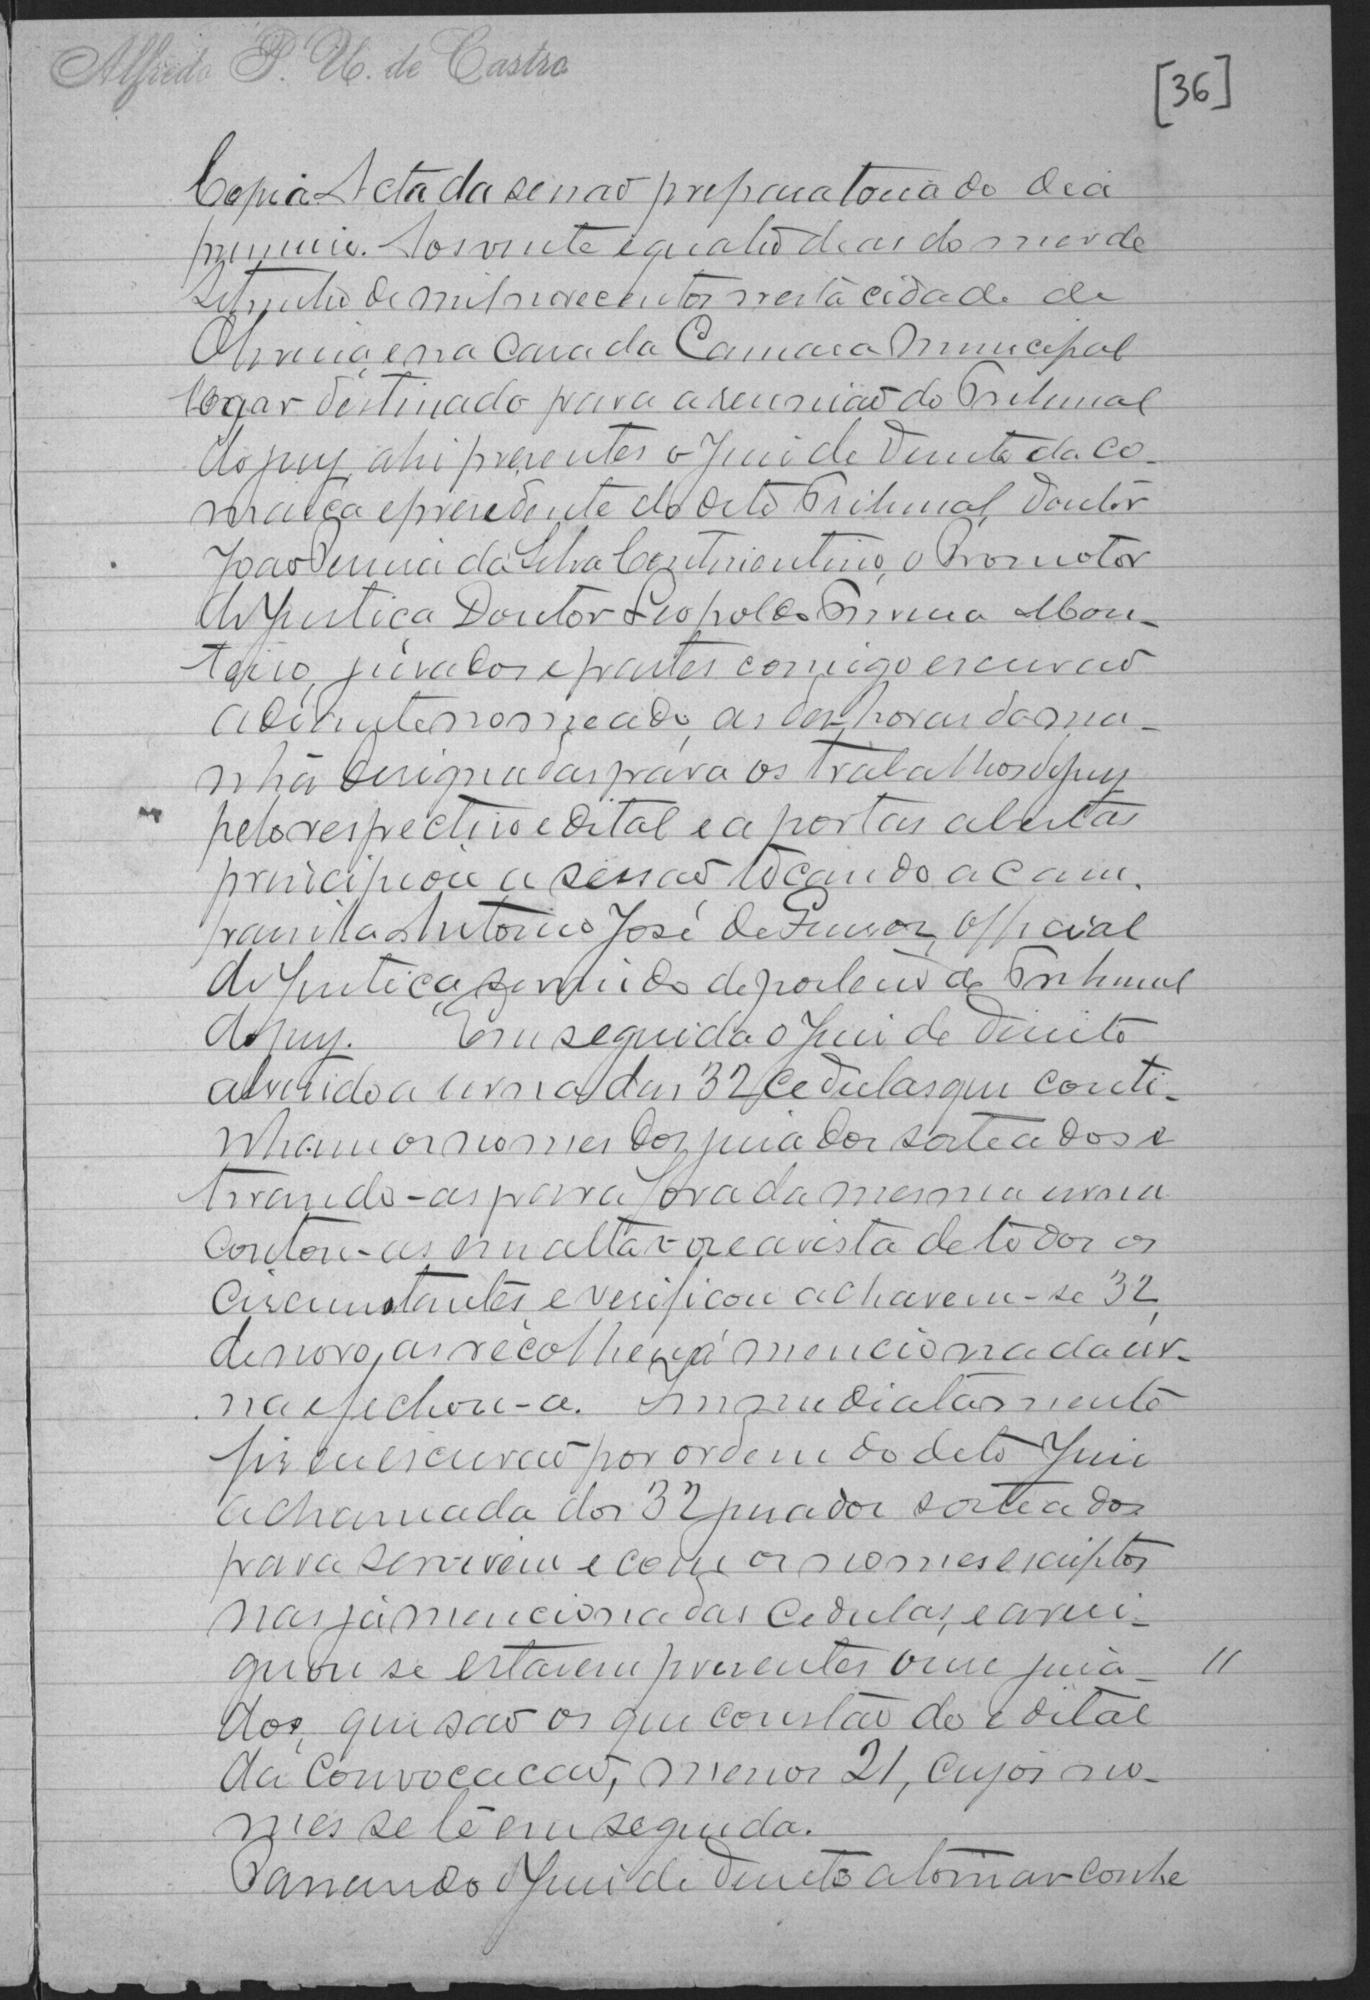 Alfredo P. U. de Castro
[36]
Copia. Acta da sessão preparatoria do dia
primeiro. Aos vinte e quatro dias do mez de
Setembro de mil novecentos nesta cidade de
Oliveira, e na casa da Camara Municipal
logar destinado para a reunião do Tribunal
do jury, ahi presentes o Juiz de Direito da co-
marca e presidente do dito Tribunal, Doutor
João Pereira da Silva Continentino, o Promotor
de Justiça Doutor Leopoldo Ferreira Mon-
teiro, jurados e partes comigo escrivão
adiante nomeado, as dez horas da ma-
nhã designadas para os trabalhos do jury
pelo respectivo edital e a portas abertas
principiou a sessão tocando a cam-
painha Antonio José de Souza, official
de Justiça, servindo de porteiro do Tribunal
do jury. Em seguida o Juiz de Direito
abrindo a urna das 32 cedulas que conti-
nham os nomes dos jurados sorteados e
tirando-as para fora da mesma urna
contou-as em alta voz e a vista de todos os
circumstantes e verificou acharem-se 32,
de novo, as recolheu á mencionada ur-
na e fechou-a. Immediatamente
fiz eu escrivão por ordem do dito Juiz
a chamada dos 32 jurados sorteados
para servirem e com os nomes escriptos
nas já mencionadas cedulas, e averi-
guou se estarem presentes onze jura- 11
dos, que são os que constão do edital
da convocacão, menos 21, cujos no-
mes se lê em seguida.
Passando o Juiz de Direito a tomar conhe